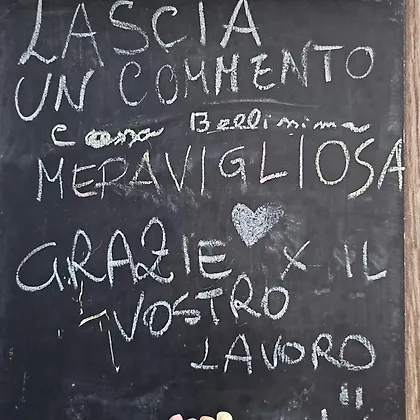 LASCIA
UN COMMENTO
Casa Bellissima
MERAVIGLIOSA
GRAZIE X IL
VOSTRO
LAVORO